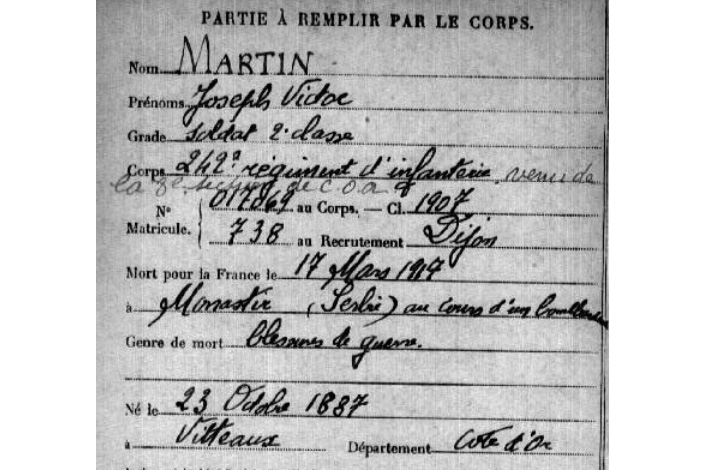 PARTIE À REMPLIR PAR LE CORPS.
Nom MARTIN
Prénoms Joseph Victor
Grade Soldat 2e classe
Corps 242e régiment d'infanterie, venu de
la 8e section de C.O.A
N° 017069 au Corps. — Cl. 1907
Matricule. 738 au Recrutement Dijon
Mort pour la France le 17 Mars 1917
à Monastir (Serbie) au cours d'un bombardem
Genre de mort blessures de guerre.
Né le 23 Octobre 1887
à Vitteaux Département Cote d'Or